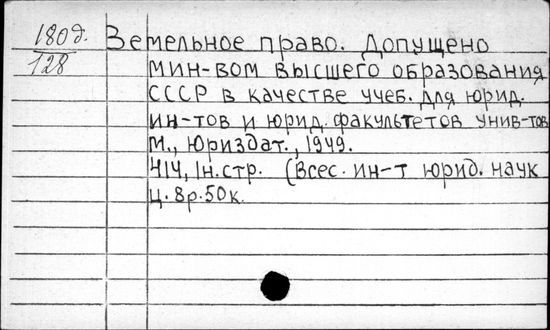 180д.
128
Земельное право. Допущено
мин-вом высшего образования
СССР в качестве учеб. для юрид.
ин-тов и юрид. факультетов унив-тов
М., Юриздат., 1949.
414, 1н.стр. (Всес. ин-т юрид. наук
ц. 8р.50к.